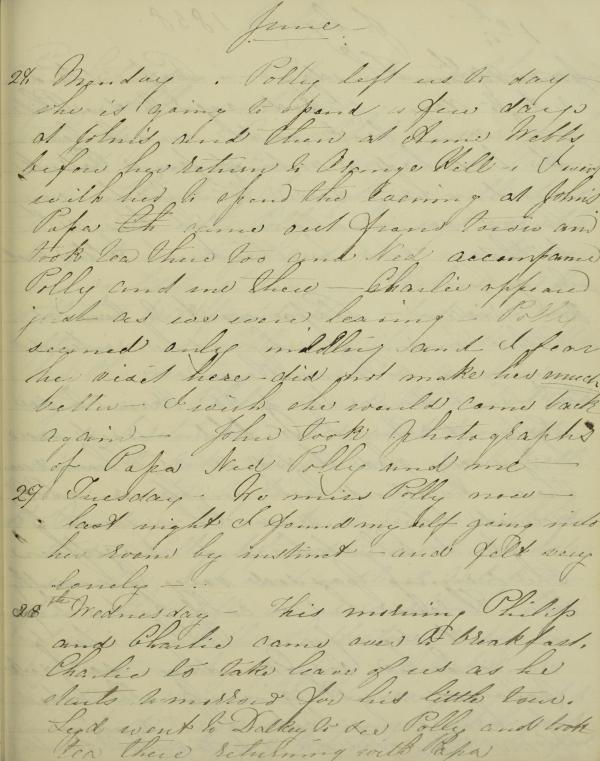 June
28 Monday. Polly left us to day
she is going to spend a few days
at John's and then at Anne Webbs
before her return to Orange Hill - I went
with her to spend the Evening at John's
Papa came out from town and
took tea there too and Ned accompanied
Polly and me there - Charlie appeared
just as we were leaving - Polly
seemed only middling and I fear
her visit here did not make her much
better - I wish she would come back
again - John took photographs
of Papa Ned Polly and me -
29 Tuesday - We miss Polly now -
last night I found myself going into
her room by instinct - and felt very
lonely -
th Wednesday - This morning Philip
and Charlie came over to breakfast.
Charlie to take leave of us as he
starts tomorrow for his little tour.
Lyd went to Dalkey to see Polly and took
tea there returning with Papa